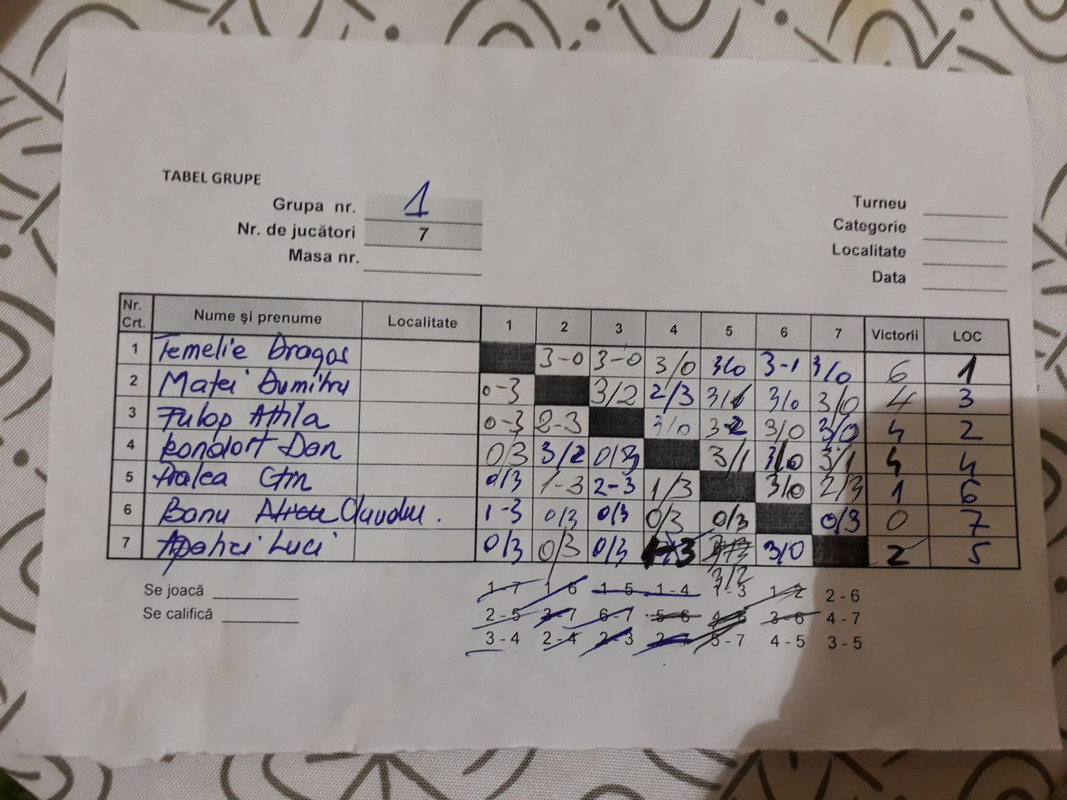 TABEL GRUPE
Grupa nr. 1
Nr. de jucători 7
Masa nr.
Turneu
Categorie
Localitate
Data
Nr. Crt. Nume și prenume Localitate 1 2 3 4 5 6 7 Victorii LOC
1 Temelie Dragos 3-0 3-0 3/0 3/0 3-1 3/0 6 1
2 Matei Dumitru 0-3 3/2 2/3 3/1 3/0 3/0 4 3
3 Fulop Attila 0-3 2-3 3/0 3-2 3/0 3/0 4 2
4 Dan 0/3 3/2 0/3 3/1 3/0 3/1 4 4
5 0/3 1-3 2-3 1/3 3/0 2/3 1 6
6 Banu Claudiu. 1-3 0/3 0/3 0/3 0/3 0/3 0 7
7 Luci 0/3 0/3 0/3 1-3 3/0 2 5
3/2
Se joacă 1-7 1-6 1-5 1-4 1-3 1-2 2-6
Se califică 2-5 3-7 6-7 5-6 3-6 4-7
3-4 2-4 2-3 5-7 4-5 3-5